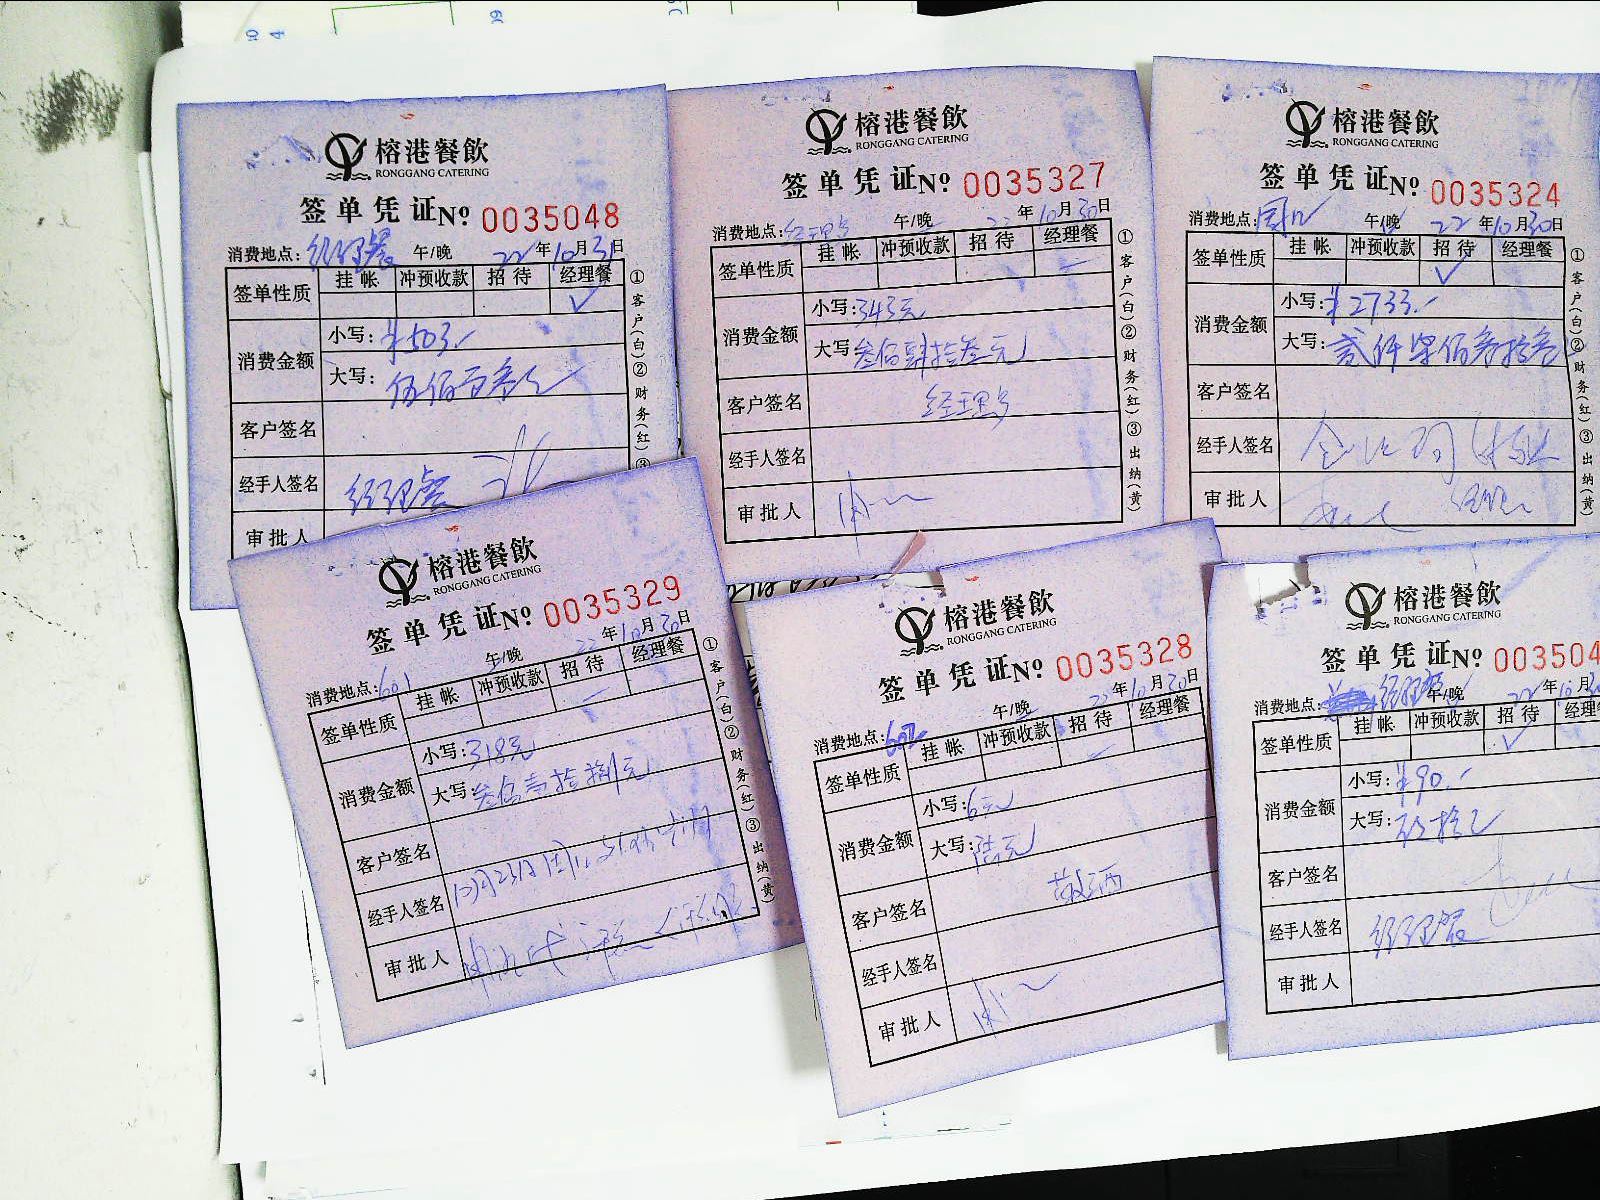 榕港餐飲
RONGGANG CATERING
签单凭证 Nº 0035048
消费地点: 经理餐 午/晚 22年10月31日
签单性质 挂帐 冲预收款 招待 经理餐
✓
消费金额 小写: ¥503.-
大写: 伍佰
客户签名
经手人签名 经理餐
审批人
①客户(白)②财务(红)③
榕港餐飲
RONGGANG CATERING
签单凭证 Nº 0035327
消费地点: 经理 午/晚 22年10月30日
签单性质 挂帐 冲预收款 招待 经理餐
消费金额 小写: 343元
大写 叁佰肆拾叁元
客户签名 经理
经手人签名
审批人
①客户(白)②财务(红)③出纳(黄)
榕港餐飲
RONGGANG CATERING
签单凭证 Nº 0035324
消费地点: 午/晚 22年10月30日
签单性质 挂帐 冲预收款 招待 经理餐
✓
消费金额 小写: ¥2733.-
大写: 贰仟柒佰叁拾叁
客户签名
经手人签名
审批人
①客户(白)②财务(红)③出纳(黄)
榕港餐飲
RONGGANG CATERING
签单凭证 Nº 0035329
消费地点: 601 午/晚 22年10月30日
签单性质 挂帐 冲预收款 招待 经理餐
消费金额 小写: 318元
大写: 叁佰壹拾捌元
客户签名
经手人签名 10月23日
审批人
①客户(白)②财务(红)③出纳(黄)
榕港餐飲
RONGGANG CATERING
签单凭证 Nº 0035328
消费地点: 午/晚 22年10月30日
签单性质 挂帐 冲预收款 招待 经理餐
消费金额 小写: 6元
大写: 陆元
客户签名 敬酒
经手人签名
审批人
榕港餐飲
RONGGANG CATERING
签单凭证 Nº 003504
消费地点: 经理餐 午/晚 22年10月
签单性质 挂帐 冲预收款 招待 经理
✓
消费金额 小写: ¥90.-
大写: 玖拾元
客户签名
经手人签名 经理餐
审批人